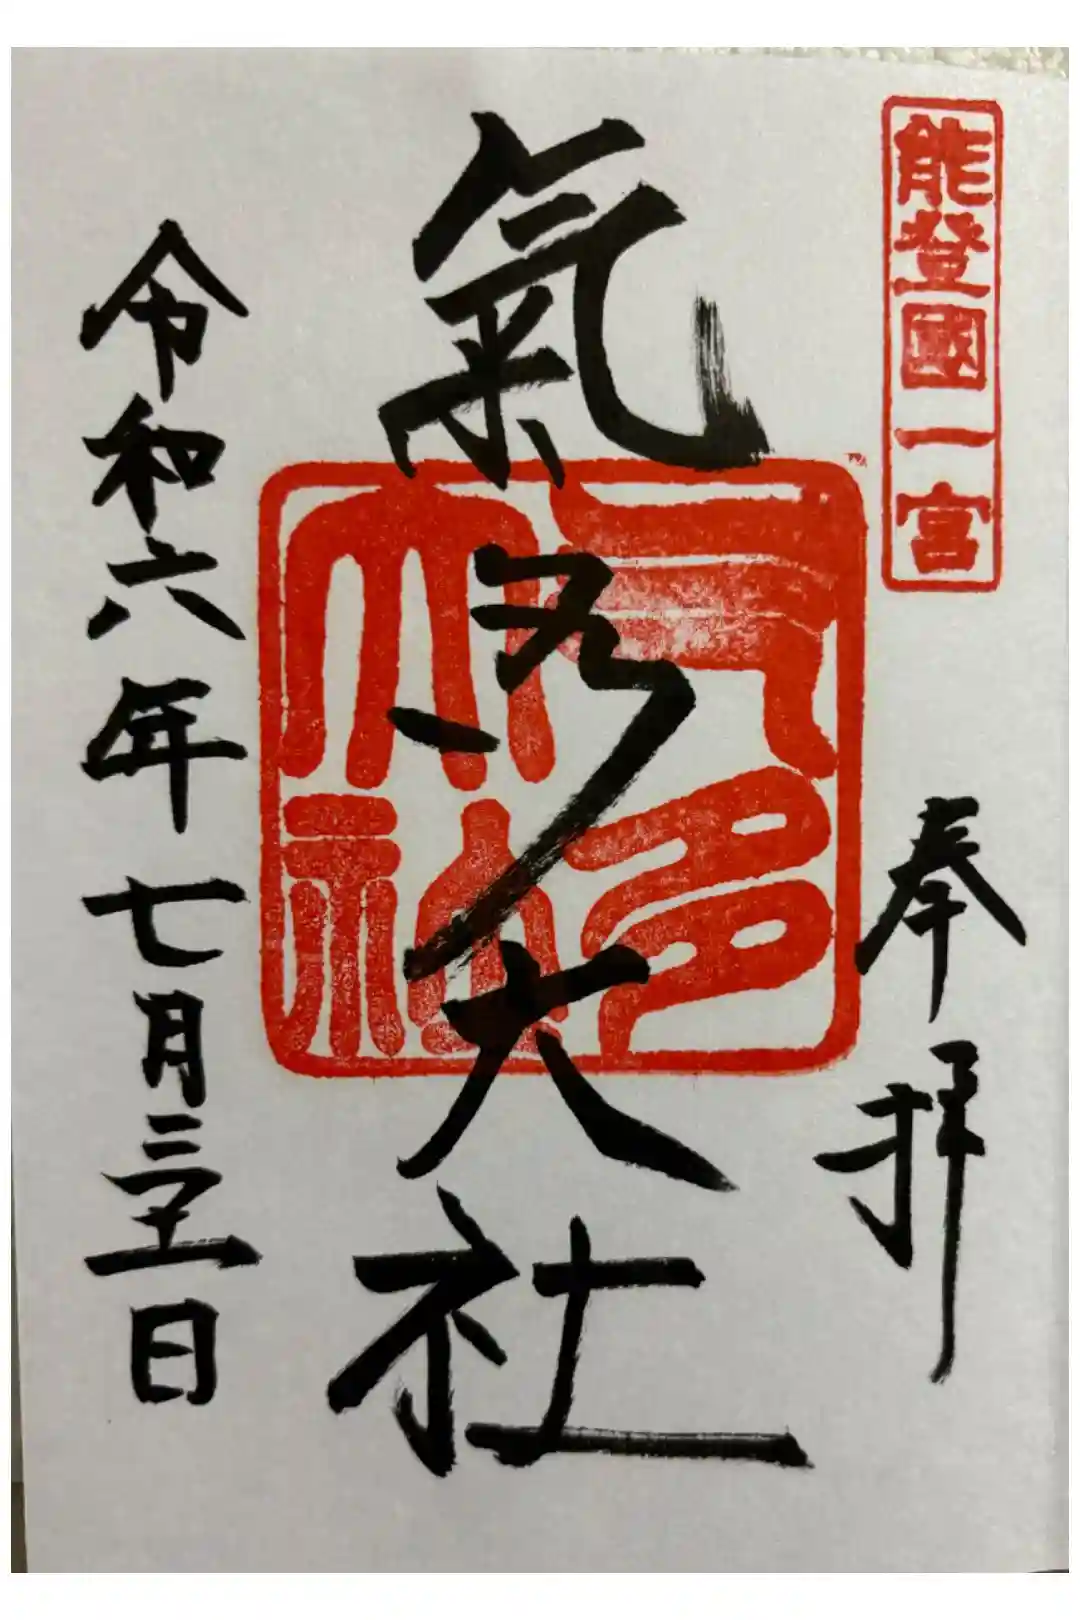 能登國一宮
奉拝
氣多大社
气多
大社
令和六年七月日